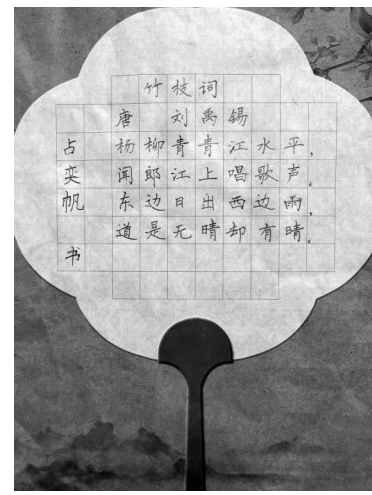 竹枝词
唐 刘禹锡
杨柳青青江水平,
闻郎江上唱歌声。
东边日出西边雨,
道是无晴却有晴。
占奕帆 书